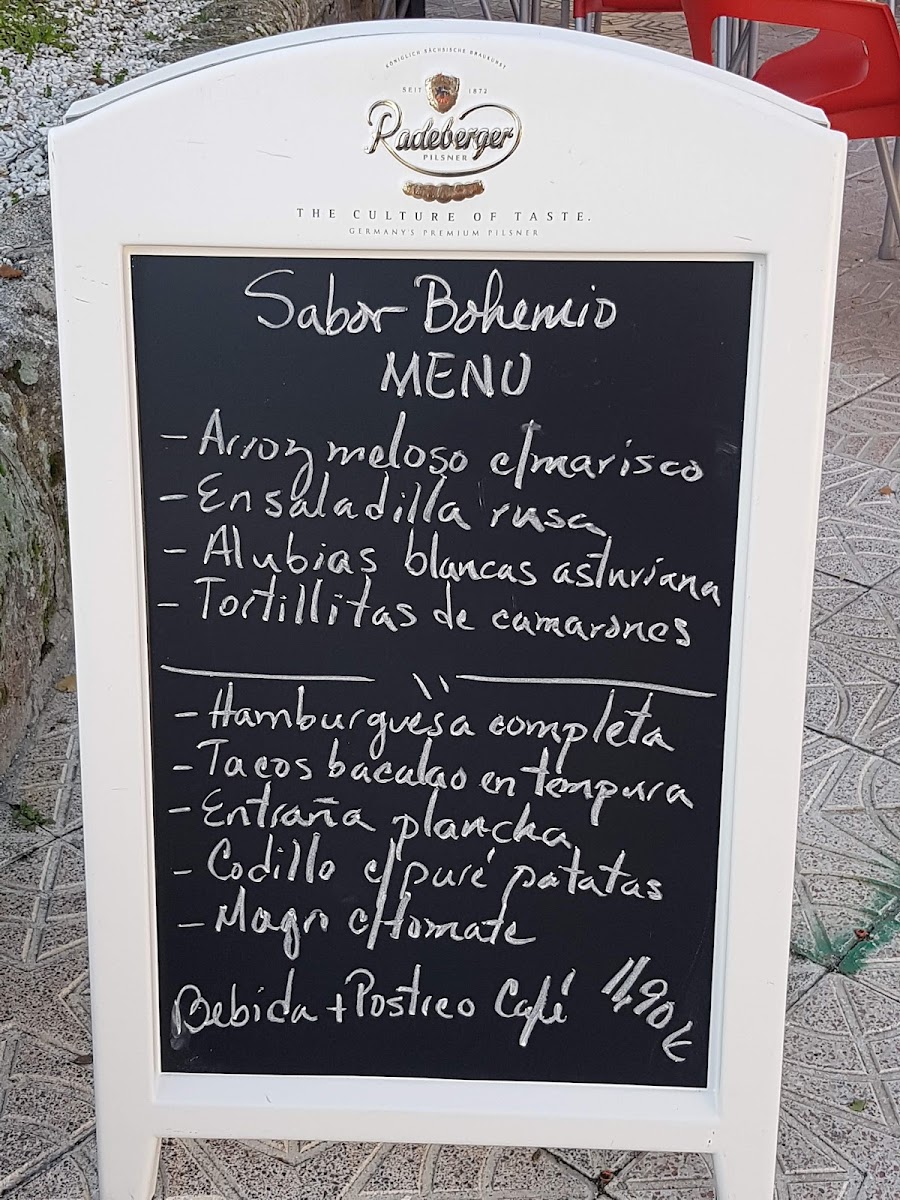 KÖNIGLICH SÄCHSISCHE BRAUKUNST
SEIT 1872
Radeberger
PILSNER
THE CULTURE OF TASTE.
GERMANY'S PREMIUM PILSNER
Sabor Bohemio
MENU
- Arroz meloso c/marisco
- Ensaladilla rusa
- Alubias blancas asturiana
- Tortillitas de camarones
- Hamburguesa completa
- Tacos bacalao en tempura
- Entraña plancha
- Codillo c/puré patatas
- Magro c/tomate
Bebida + Postre o Café 11,90 €